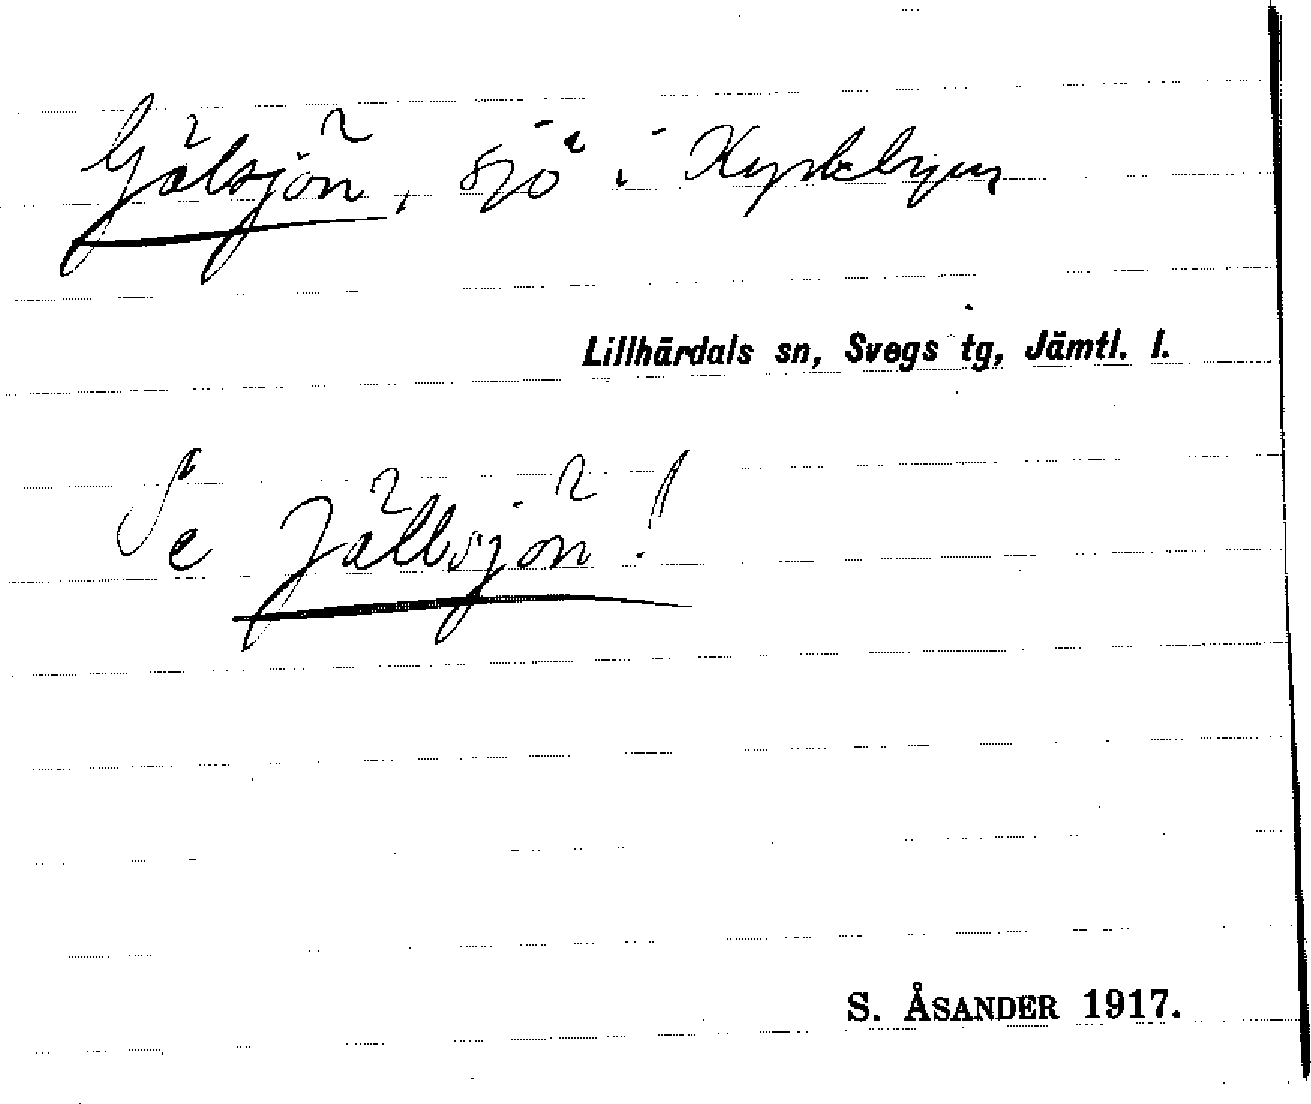 Gälsjön, sjö i Kyrkbyn
Lillhärdals sn, Svegs tg, Jämtl. l.
Se Jällsjön!
S. ÅSANDER 1917.